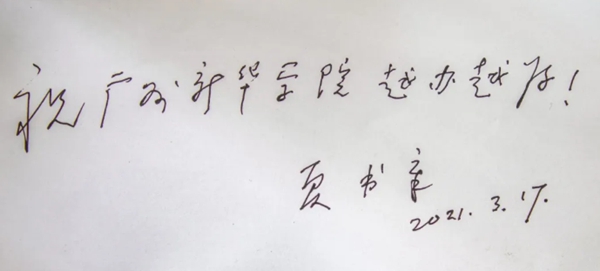 祝广州新华学院越办越好!
夏书章
2021.3.17.